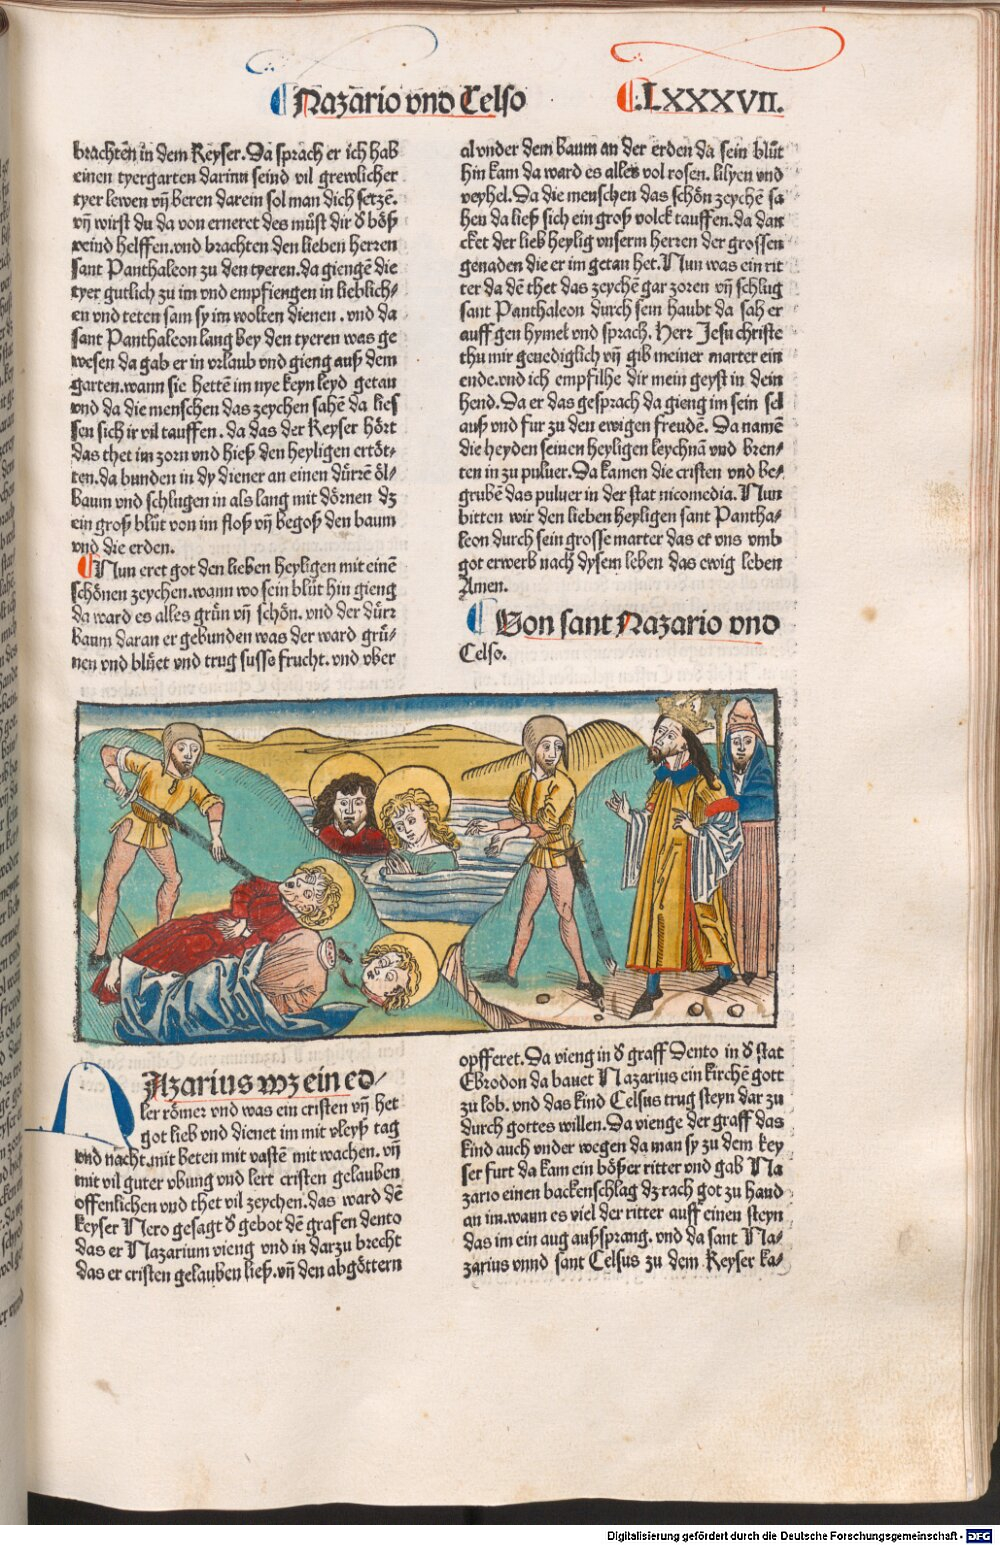 Nazario vnd Celso
.LXXXVII.
brachten in dem Keyser. Da sprach er ich hab
einen tyergarten darinn seind vil grewlicher
tyer lewen vñ beren darein sol man dich setzē.
vñ wirst du da von erneret des můst dir d̕ böß
veind helffen. vnd brachten den lieben herren
sant Panthaleon zu den tyeren. da giengē die
tyer gutlich zu im vnd empfiengen in lieblich⸗
en vnd teten sam sy im wolten dienen. vnd da
sant Panthaleon lang bey den tyeren was ge
wesen da gab er in vrlaub vnd gieng auß dem
garten. wann sie hettē im nye keyn leyd getan
vnd da die menschen das zeychen sahē da lies
sen sich ir vil tauffen. da das der Keyser hört
das thet im zorn vnd hieß den heyligen ertöt⸗
ten. da bunden in dy diener an einen dürrē öl⸗
baum vnd schlugen in als lang mit dörnen dz
ein groß blůt von im floß vñ begoß den baum
vnd die erden.
Nun eret got den lieben heyligen mit einē
schönen zeychen. wann wo sein blůt hin gieng
da ward es alles grün vñ schön. vnd der dürr
baum daran er gebunden was der ward grü⸗
nen vnd blůet vnd trug susse frucht. vnd vber
al vnder dem baum an der erden da sein blůt
hin kam da ward es alles vol rosen. lilyen vnd
veyhel. Da die menschen das schön zeychē sa
hen da ließ sich ein groß volck tauffen. da dan
cket der lieb heylig vnserm herren der grossen
genaden die er im getan het. Nun was ein rit
ter da dē thet das zeychē gar zoren vñ schlug
sant Panthaleon durch sein haubt da sah er
auff gen hymel vnd sprach. Herr Jesu christe
thu mir genediglich vñ gib meiner marter ein
ende. vnd ich empfilhe dir mein geyst in dein
hend. Da er das gesprach da gieng im sein sel
auß vnd fur zu den ewigen freudē. Da namē
die heyden seinen heyligen leychnā vnd bren⸗
ten in zu puluer. Da kamen die cristen vnd be⸗
grubē das puluer in der stat nicomedia. Nun
bitten wir den lieben heyligen sant Pantha⸗
leon durch sein grosse marter das er vns vmb
got erwerb nach dysem leben das ewig leben
Amen.
Von sant Nazario vnd
Celso.
NAzarius wz ein ed⸗
ler römer vnd was ein cristen vñ het
got lieb vnd dienet im mit vleyß tag
vnd nacht mit beten mit vastē mit wachen. vñ
mit vil guter vbung vnd lert cristen gelauben
offenlichen vnd thet vil zeychen. das ward dē
keyser Nero gesagt d̕ gebot dē grafen dento
das er Nazarium vieng vnd in darzu brecht
das er cristen gelauben ließ. vñ den abgöttern
opfferet. Da vieng in d̕ graff Dento in d̕ stat
Ebrodon da bauet Nazarius ein kirchē gott
zu lob. vnd das kind Celsus trug steyn dar zu
durch gottes willen. Da vienge der graff das
kind auch vnder wegen da man sy zu dem key
ser furt da kam ein bößer ritter vnd gab Na
zario einen backenschlag dz rach got zu hand
an im. wann es viel der ritter auff einen steyn
das im ein aug außsprang. vnd da sant Na⸗
zarius vnnd sant Celsus zu dem Keyser ka⸗
Digitalisierung gefördert durch die Deutsche Forschungsgemeinschaft - DFG